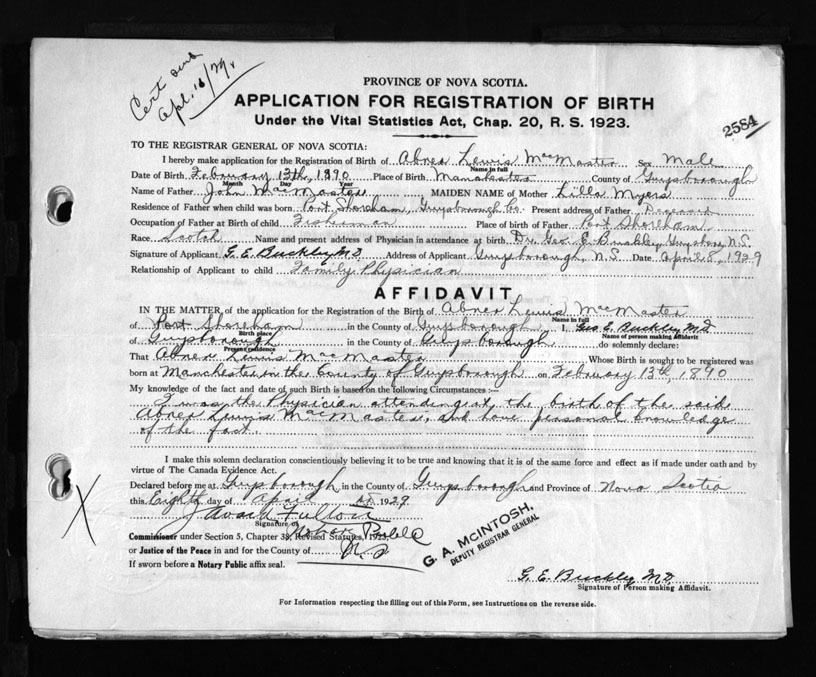 Cert and
Apl. 16/29.
PROVINCE OF NOVA SCOTIA.
APPLICATION FOR REGISTRATION OF BIRTH
Under the Vital Statistics Act, Chap. 20, R. S. 1923.
2584
TO THE REGISTRAR GENERAL OF NOVA SCOTIA:
I hereby make application for the Registration of Birth of Abner Lewis MacMaster Sex Male
Name in full
Date of Birth February 13th, 1890 Place of Birth Manchester County of Guysborough
Month Day Year
Name of Father John MacMaster MAIDEN NAME of Mother Lilla Myers
Residence of Father when child was born Port Shoreham, Guysborough Co. Present address of Father Deceased
Occupation of Father at Birth of child Fisherman Place of birth of Father Port Shoreham
Race Scotch Name and present address of Physician in attendance at birth Dr. Geo. E. Buckley, Guysboro, N.S.
Signature of Applicant G. E. Buckley M.D. Address of Applicant Guysborough, N.S. Date April 8, 1929
Relationship of Applicant to child Family Physician
AFFIDAVIT
IN THE MATTER of the application for the Registration of the Birth of Abner Lewis MacMaster
Name in full
of Port Shoreham in the County of Guysborough I, Geo. E. Buckley, M.D
Birth place Name of person making Affidavit
of Guysborough in the County of Guysborough do solemnly declare:
Present residence
That Abner Lewis MacMaster Whose Birth is sought to be registered was
born at Manchester in the County of Guysborough on February 13th, 1890
My knowledge of the fact and date of such Birth is based on the following Circumstances :—
I was the Physician attending at the birth of the said
Abner Lewis MacMaster, and have personal knowledge
of the fact.
I make this solemn declaration conscientiously believing it to be true and knowing that it is of the same force and effect as if made under oath and by
virtue of The Canada Evidence Act.
Declared before me at Guysborough in the County of Guysborough and Province of Nova Scotia
this Eighth day of April A.D. 1929
J Avard Fulton
Signature of
Notary Public
Commissioner under Section 5, Chapter 38, Revised Statutes, 1923,
or Justice of the Peace in and for the County of N.S
If sworn before a Notary Public affix seal.
G. A. McINTOSH,
DEPUTY REGISTRAR GENERAL
X
G. E. Buckley M.D.
Signature of Person making Affidavit.
For Information respecting the filling out of this Form, see Instructions on the reverse side.